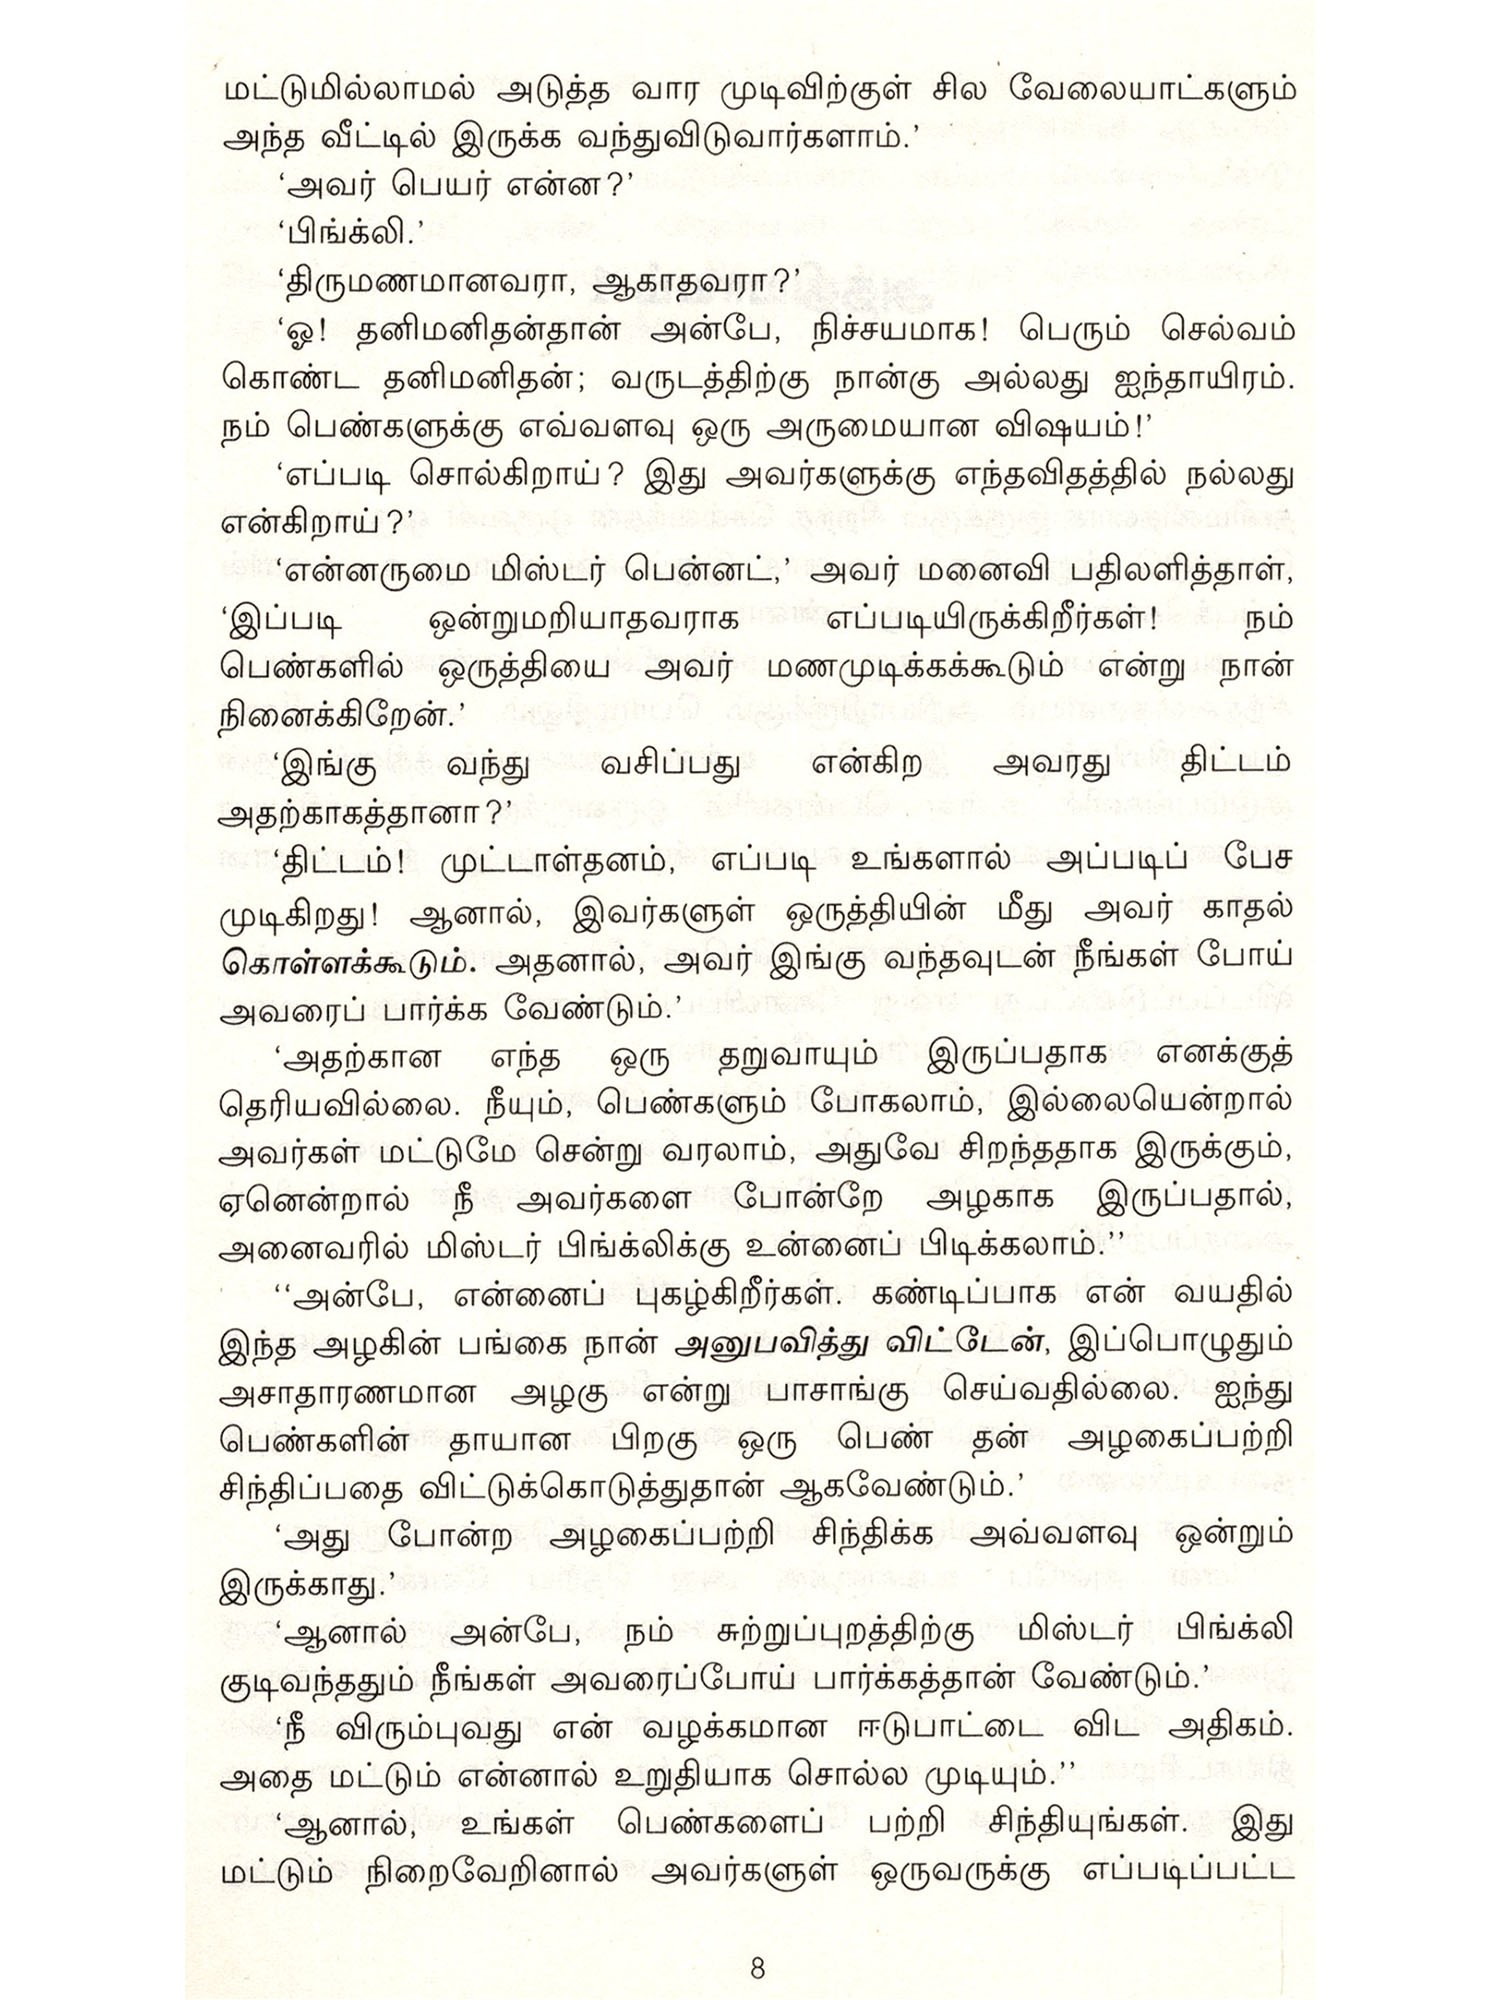 மட்டுமில்லாமல் அடுத்த வார முடிவிற்குள் சில வேலையாட்களும்
அந்த வீட்டில் இருக்க வந்துவிடுவார்களாம்.’
‘அவர் பெயர் என்ன?’
‘பிங்க்லி.’
‘திருமணமானவரா, ஆகாதவரா?’
‘ஓ! தனிமனிதன்தான் அன்பே, நிச்சயமாக! பெரும் செல்வம்
கொண்ட தனிமனிதன்; வருடத்திற்கு நான்கு அல்லது ஐந்தாயிரம்.
நம் பெண்களுக்கு எவ்வளவு ஒரு அருமையான விஷயம்!’
‘எப்படி சொல்கிறாய்? இது அவர்களுக்கு எந்தவிதத்தில் நல்லது
என்கிறாய்?’
‘என்னருமை மிஸ்டர் பென்னட்,’ அவர் மனைவி பதிலளித்தாள்,
‘இப்படி ஒன்றுமறியாதவராக எப்படியிருக்கிறீர்கள்! நம்
பெண்களில் ஒருத்தியை அவர் மணமுடிக்கக்கூடும் என்று நான்
நினைக்கிறேன்.’
‘இங்கு வந்து வசிப்பது என்கிற அவரது திட்டம்
அதற்காகத்தானா?’
‘திட்டம்! முட்டாள்தனம், எப்படி உங்களால் அப்படிப் பேச
முடிகிறது! ஆனால், இவர்களுள் ஒருத்தியின் மீது அவர் காதல்
கொள்ளக்கூடும். அதனால், அவர் இங்கு வந்தவுடன் நீங்கள் போய்
அவரைப் பார்க்க வேண்டும்.’
‘அதற்கான எந்த ஒரு தறுவாயும் இருப்பதாக எனக்குத்
தெரியவில்லை. நீயும், பெண்களும் போகலாம், இல்லையென்றால்
அவர்கள் மட்டுமே சென்று வரலாம், அதுவே சிறந்ததாக இருக்கும்,
ஏனென்றால் நீ அவர்களை போன்றே அழகாக இருப்பதால்,
அனைவரில் மிஸ்டர் பிங்க்லிக்கு உன்னைப் பிடிக்கலாம்.’’
‘‘அன்பே, என்னைப் புகழ்கிறீர்கள். கண்டிப்பாக என் வயதில்
இந்த அழகின் பங்கை நான் அனுபவித்து விட்டேன், இப்பொழுதும்
அசாதாரணமான அழகு என்று பாசாங்கு செய்வதில்லை. ஐந்து
பெண்களின் தாயான பிறகு ஒரு பெண் தன் அழகைப்பற்றி
சிந்திப்பதை விட்டுக்கொடுத்துதான் ஆகவேண்டும்.’
‘அது போன்ற அழகைப்பற்றி சிந்திக்க அவ்வளவு ஒன்றும்
இருக்காது.’
‘ஆனால் அன்பே, நம் சுற்றுப்புறத்திற்கு மிஸ்டர் பிங்க்லி
குடிவந்ததும் நீங்கள் அவரைப்போய் பார்க்கத்தான் வேண்டும்.’
‘நீ விரும்புவது என் வழக்கமான ஈடுபாட்டை விட அதிகம்.
அதை மட்டும் என்னால் உறுதியாக சொல்ல முடியும்.’’
‘ஆனால், உங்கள் பெண்களைப் பற்றி சிந்தியுங்கள். இது
மட்டும் நிறைவேறினால் அவர்களுள் ஒருவருக்கு எப்படிப்பட்ட
8